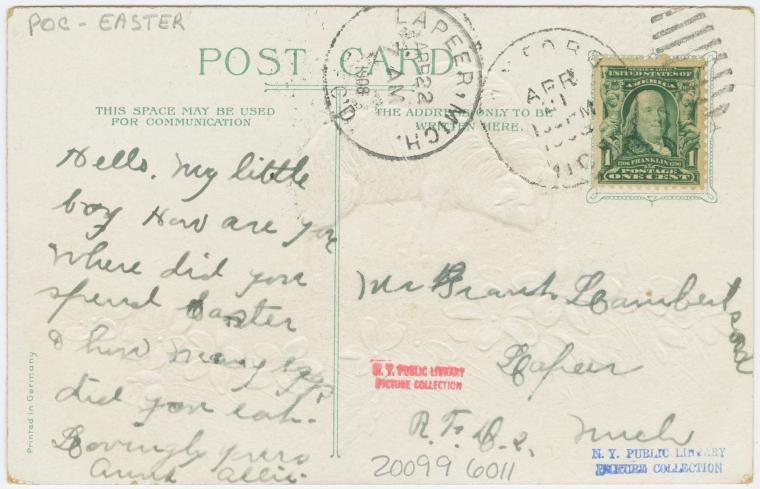 POC - EASTER
POST CARD
THIS SPACE MAY BE USED
FOR COMMUNICATION
THE ADDRESS ONLY TO BE
WRITTEN HERE.
LAPEER, MICH.
APR 22
7 AM
1908
REC'D
APR
21
MIC
SERIES 1902
UNITED STATES OF
AMERICA
1706 FRANKLIN 1790
1 POSTAGE 1
ONE CENT
Hello, My little
boy How are you
Where did you
spend Easter
& how many eggs
did you eat.
Lovingly yours
Aunt Allie.
Mr Frank Lambertson
Lapeer
R.F.D. 2. Mich
N. Y. PUBLIC LIBRARY
PICTURE COLLECTION
20099 6011
N. Y. PUBLIC LIBRARY
PICTURE COLLECTION
Printed in Germany